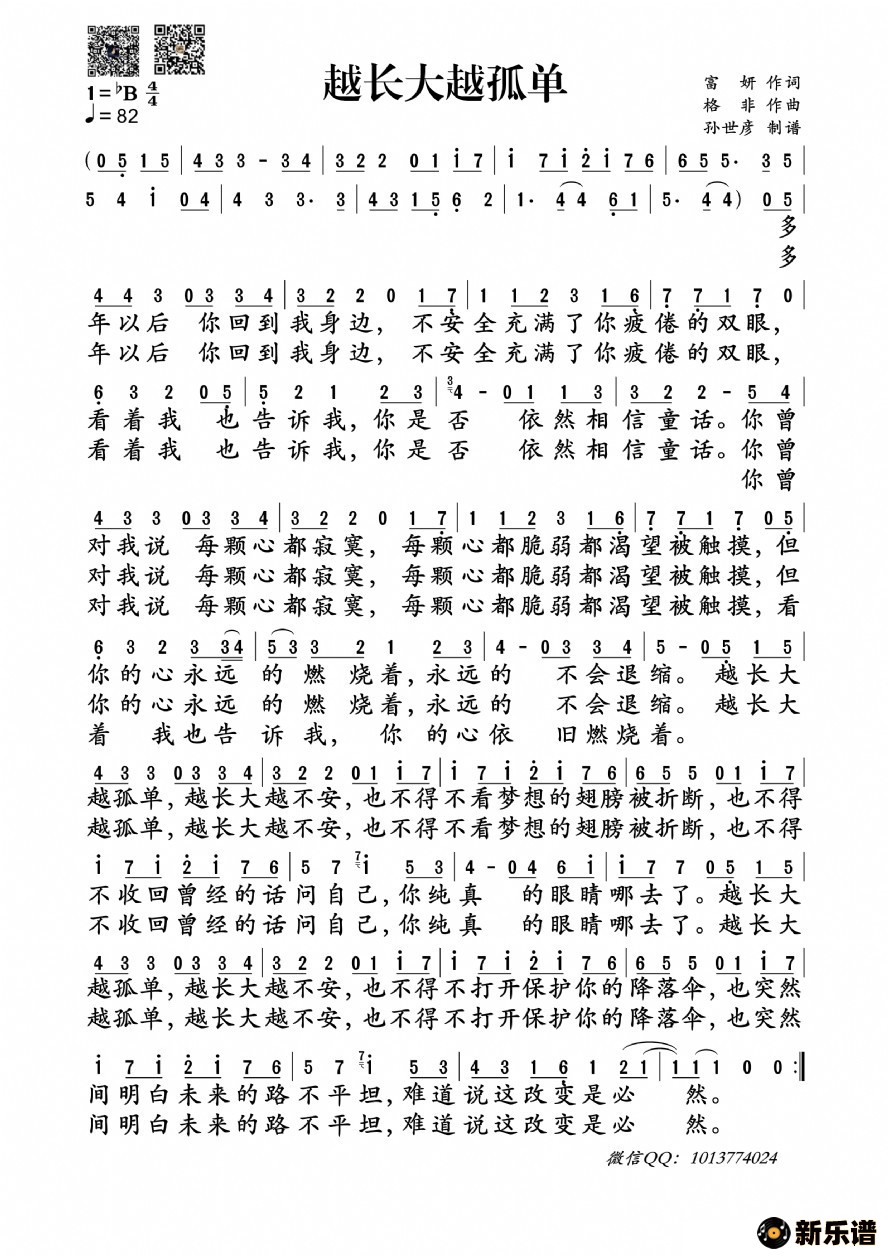 越长大越孤单
1=♭B 4/4
♩=82
富 妍 作词
格 非 作曲
孙世彦 制谱
(0 5 1 5 | 4 3 3 - 3 4 | 3 2 2 0 1 i 7 | i 7 i 2 i 7 6 | 6 5 5· 3 5 |
5 4 i 0 4 | 4 3 3· 3 | 4 3 1 5 6 2 | 1· 4 4 6 1 | 5· 4 4) 0 5 |
多
多
4 4 3 0 3 3 4 | 3 2 2 0 1 7 | 1 1 2 3 1 6 | 7 7 1 7 0
年以后 你回到我身边, 不安全充满了你疲倦的双眼,
年以后 你回到我身边, 不安全充满了你疲倦的双眼,
6 3 2 0 5 | 5 2 1 2 3 | 3 4 - 0 1 1 3 | 3 2 2 - 5 4 |
看着我 也告诉我,你是否 依然相信童话。你曾
看着我 也告诉我,你是否 依然相信童话。你曾
你曾
4 3 3 0 3 3 4 | 3 2 2 0 1 7 | 1 1 2 3 1 6 | 7 7 1 7 0 5 |
对我说 每颗心都寂寞, 每颗心都脆弱都渴望被触摸,但
对我说 每颗心都寂寞, 每颗心都脆弱都渴望被触摸,但
对我说 每颗心都寂寞, 每颗心都脆弱都渴望被触摸,看
6 3 2 3 3 4 | 5 3 3 2 1 2 3 | 4 - 0 3 3 4 | 5 - 0 5 1 5 |
你的心永远 的 燃 烧着,永远的 不会退缩。 越长大
你的心永远 的 燃 烧着,永远的 不会退缩。 越长大
着 我也告 诉我, 你 的心依 旧燃烧着。
4 3 3 0 3 3 4 | 3 2 2 0 1 i 7 | i 7 i 2 i 7 6 | 6 5 5 0 1 i 7 |
越孤单,越长大越不安,也不得不看梦想的翅膀被折断,也不得
越孤单,越长大越不安,也不得不看梦想的翅膀被折断,也不得
i 7 i 2 i 7 6 | 5 7 7 i 5 3 | 4 - 0 4 6 i | i 7 7 0 5 1 5 |
不收回曾经的话问自己,你纯真 的眼睛哪去了。越长大
不收回曾经的话问自己,你纯真 的眼睛哪去了。越长大
4 3 3 0 3 3 4 | 3 2 2 0 1 i 7 | i 7 i 2 i 7 6 | 6 5 5 0 1 i 7 |
越孤单,越长大越不安,也不得不打开保护你的降落伞,也突然
越孤单,越长大越不安,也不得不打开保护你的降落伞,也突然
i 7 i 2 i 7 6 | 5 7 7 i 5 3 | 4 3 1 6 1 2 1 | 1 1 1 0 0 :‖
间明白未来的路不平坦,难道说这改变是必 然。
间明白未来的路不平坦,难道说这改变是必 然。
微信QQ: 1013774024
新乐谱